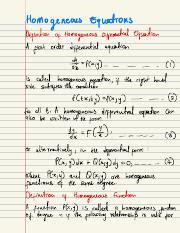 Homogeneous Equations
Definition of Homogeneous Differential Equation
A first order differential equation
dy/dx = f(x,y) (1)
is called homogeneous equation, if the right hand
side satisfies the condition
f(tx,ty) = f(x,y) (2)
for all t. A homogeneous differential equation can
also be written in the form
dy/dx = F(y/x) (3)
or alternatively, in the differential form:
P(x,y)dx + Q(x,y)dy = 0
where P(x,y) and Q(x,y) are homogeneous
functions of the same degree
Definition of Homogeneous Function
A function P(x,y) is called a homogeneous function
of degree n if the following relationship is valid for